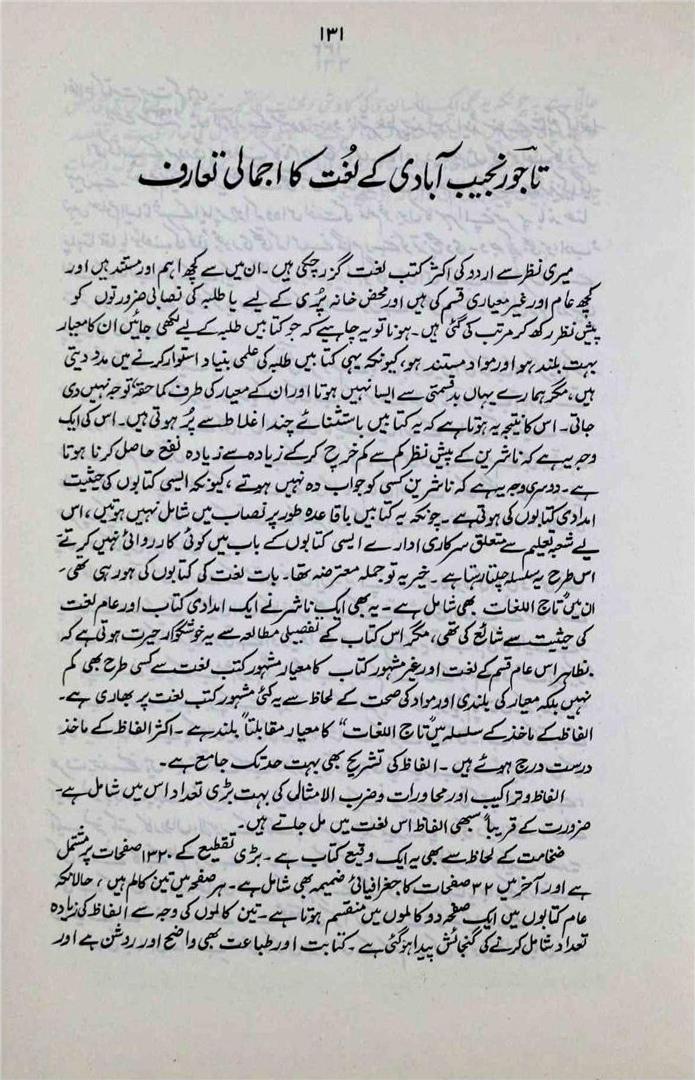 ۱۳۱
تاجور نجیب آبادی کے لُغت کا اجمالی تعارف
میری نظر سے اردو کی اکثر کتب لغت گزر چکی ہیں۔ ان میں سے کچھ اہم اور مستند ہیں اور
کچھ عام اور غیر معیاری قسم کی ہیں اور محض خانہ پُری کے لیے یا طلبہ کی نصابی ضرورتوں کو
پیش نظر رکھ کر مرتب کی گئی ہیں۔ ہونا تو یہ چاہیے کہ جو کتابیں طلبہ کے لیے لکھی جائیں ان کا معیار
بہت بلند ہو اور مواد مستند ہو، کیونکہ یہی کتابیں طلبہ کی علمی بنیاد استوار کرنے میں مدد دیتی
ہیں، مگر ہمارے یہاں بدقسمتی سے ایسا نہیں ہوتا اور ان کے معیار کی طرف کماحقہٗ توجہ نہیں دی
جاتی۔ اس کا نتیجہ یہ ہوتا ہے کہ یہ کتابیں باستثنائے چند اغلاط سے پُر ہوتی ہیں۔ اس کی ایک
وجہ یہ ہے کہ ناشرین کے پیش نظر کم سے کم خرچ کرکے زیادہ سے زیادہ نفع حاصل کرنا ہوتا
ہے۔ دوسری وجہ یہ ہے کہ ناشرین کسی کو جواب دہ نہیں ہوتے، کیونکہ ایسی کتابوں کی حیثیت
امدادی کتابوں کی ہوتی ہے۔ چونکہ یہ کتابیں باقاعدہ طور پر نصاب میں شامل نہیں ہوتیں، اس
لیے شعبہ تعلیم سے متعلق سرکاری ادارے ایسی کتابوں کے باب میں کوئی کارروائی نہیں کرتے۔
اس طرح یہ سلسلہ چلتا رہتا ہے۔ خیر یہ تو جملہ معترضہ تھا۔ بات لغت کی کتابوں کی ہو رہی تھی۔
ان میں "تاج اللغات" بھی شامل ہے۔ یہ بھی ایک ناشر نے ایک امدادی کتاب اور عام لغت
کی حیثیت سے شائع کی تھی، مگر اس کتاب کے تفصیلی مطالعہ سے یہ خوشگوار حیرت ہوتی ہے کہ
بظاہر اس عام قسم کے لغت اور غیر مشہور کتاب کا معیار مشہور کتب لغت سے کسی طرح بھی کم
نہیں بلکہ معیار کی بلندی اور مواد کی صحت کے لحاظ سے یہ کئی مشہور کتب لغت پر بھاری ہے۔
الفاظ کے ماخذ کے سلسلہ میں "تاج اللغات" کا معیار مقابلتاً بلند ہے۔ اکثر الفاظ کے ماخذ
درست درج ہوئے ہیں۔ الفاظ کی تشریح بھی بہت حد تک جامع ہے۔
الفاظ و تراکیب اور محاورات و ضرب الامثال کی بہت بڑی تعداد اس میں شامل ہے۔
ضرورت کے قریباً سبھی الفاظ اس لغت میں مل جاتے ہیں۔
ضخامت کے لحاظ سے بھی یہ ایک وقیع کتاب ہے۔ بڑی تقطیع کے ۱۳۲۰ صفحات پر مشتمل
ہے اور آخر میں ۳۲ صفحات کا جغرافیائی ضمیمہ بھی شامل ہے۔ ہر صفحہ میں تین کالم ہیں، حالانکہ
عام کتابوں میں ایک صفحہ دو کالموں میں منقسم ہوتا ہے۔ تین کالموں کی وجہ سے الفاظ کی زیادہ
تعداد شامل کرنے کی گنجائش پیدا ہو گئی ہے۔ کتابت اور طباعت بھی واضح اور روشن ہے اور